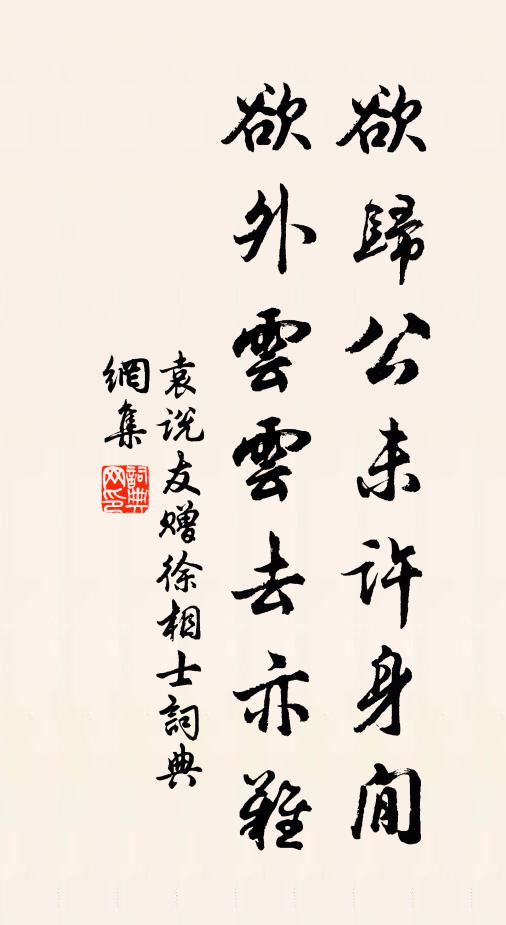 欲歸公未許身閒
欲外雲雲去亦難
袁说友赠徐相士詞典
網集
詞典網印